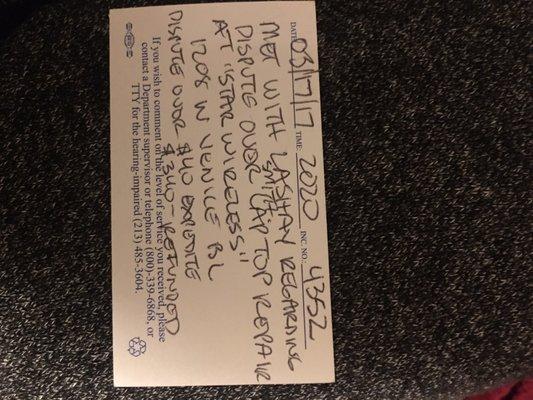 DATE: 03/17/17 TIME: 2020 INC. NO.: 4352
MET WITH LASHAY REGARDING
SMITH
DISPUTE OVER LAP TOP REPAIR
AT "STAR WIRELESS"
1208 W VENICE BL
DISPUTE OVER $40 EXPEDITE
$340- REFUNDED
If you wish to comment on the level of service you received, please
contact a Department supervisor or telephone (800)-339-6868, or
TTY for the hearing-impaired (213) 485-3604.